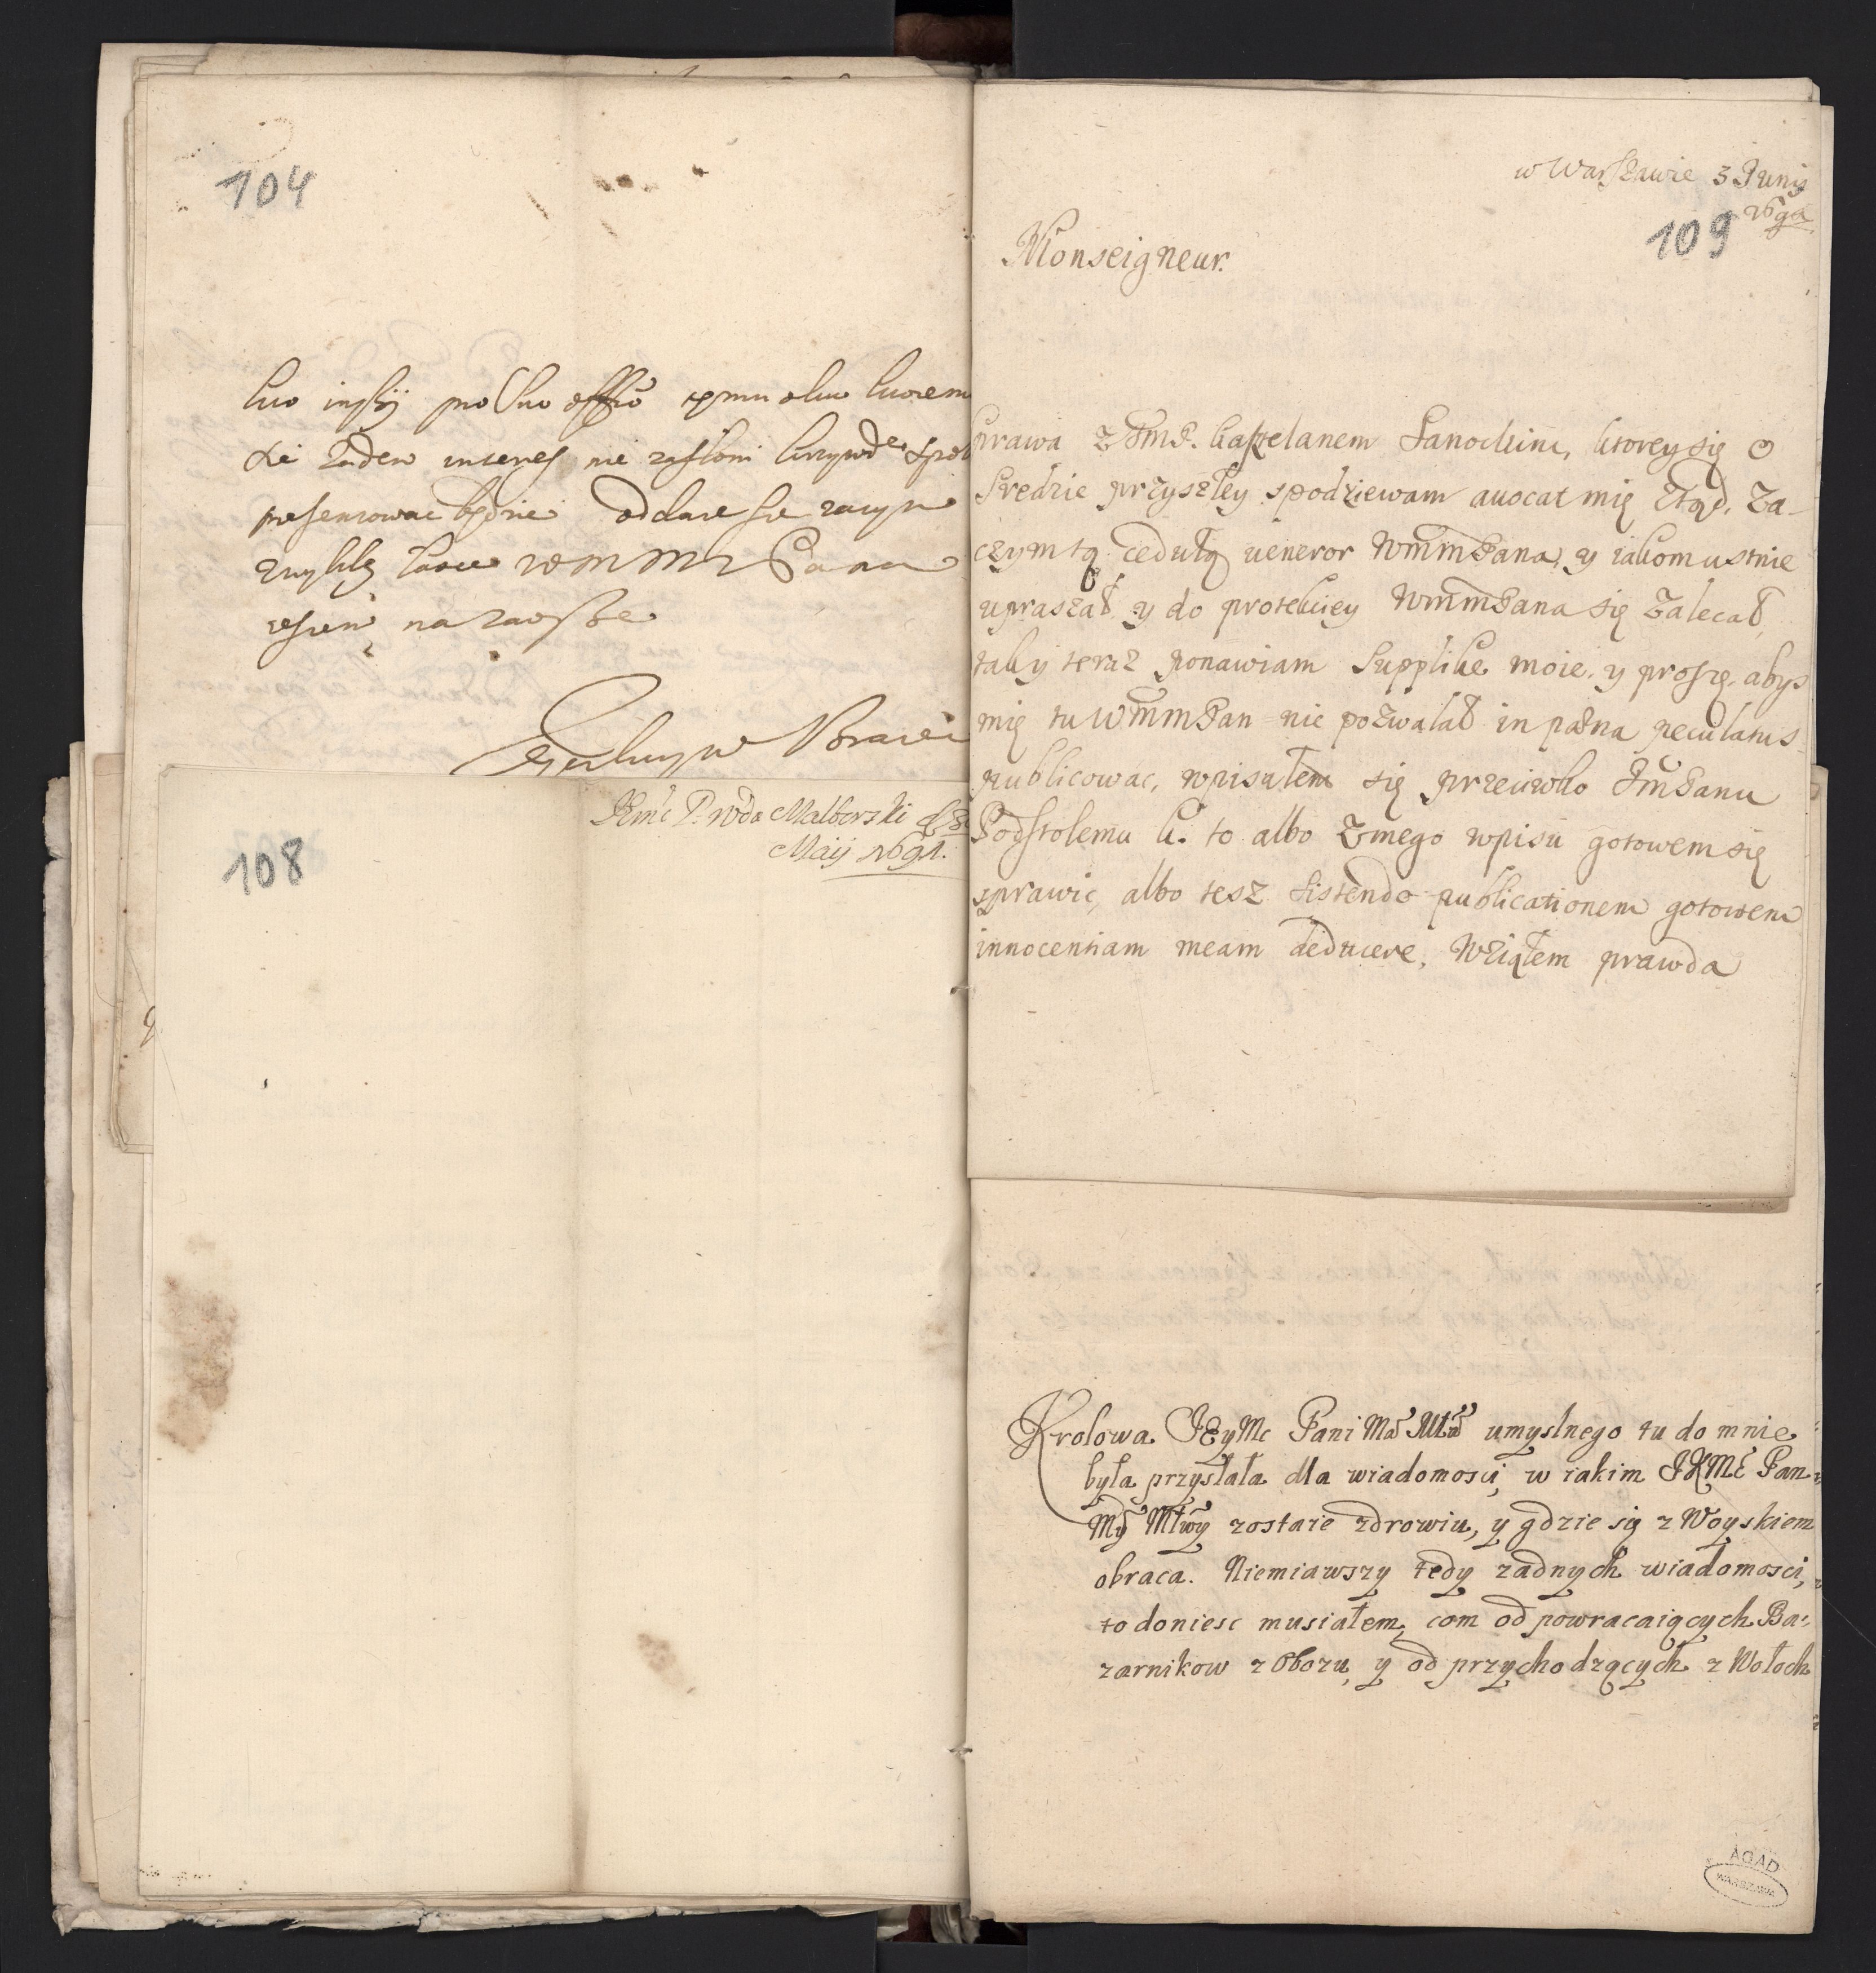 104
zaden interes nie zasłoni krzywde
presentowac będzie oddaie sie
zwykłey łasce WMM Pana
na zawsze
JEmc P. Wda Malborski
Maij 1691.
108
w Warszawie 3 Junij
169
109
Monseigneur.
Prawa z JMP. Kasztelanem Sanockim, ktorey się o
Sredzie przyszłey spodziewam auocat mię ztąd, Za-
czym tą cedułą veneror WMMPana, y iakom ustnie
upraszał y do protekciey WMMPana się zalecał,
tak y teraz ponawiam Supplike moie, y proszę, abys
mię tu WMMPan nie pozwalał in pæna peculatus
publicowac, wpisałem się przeciwko JmPanu
Podstolemu K. to albo z mego wpisu gotowem się
sprawic, albo tesz sistendo publicationem gotowem
innocentiam meam deducere, Wziąłem prawda
Krolowa JEyMc Pani Ma Mtwa umyslnego tu do mnie
była przysłała dla wiadomosci, w iakim JKMc Pan
My Mtwy zostaie zdrowiu, y gdzie się z Woyskiem
obraca. Niemiawszy tedy zadnych wiadomosci,
to doniesc musiałem, com od powracaiących Ba-
zarnikow z Obozu, y od przychodzących z Wołoch
AGAD
WARSZAWA